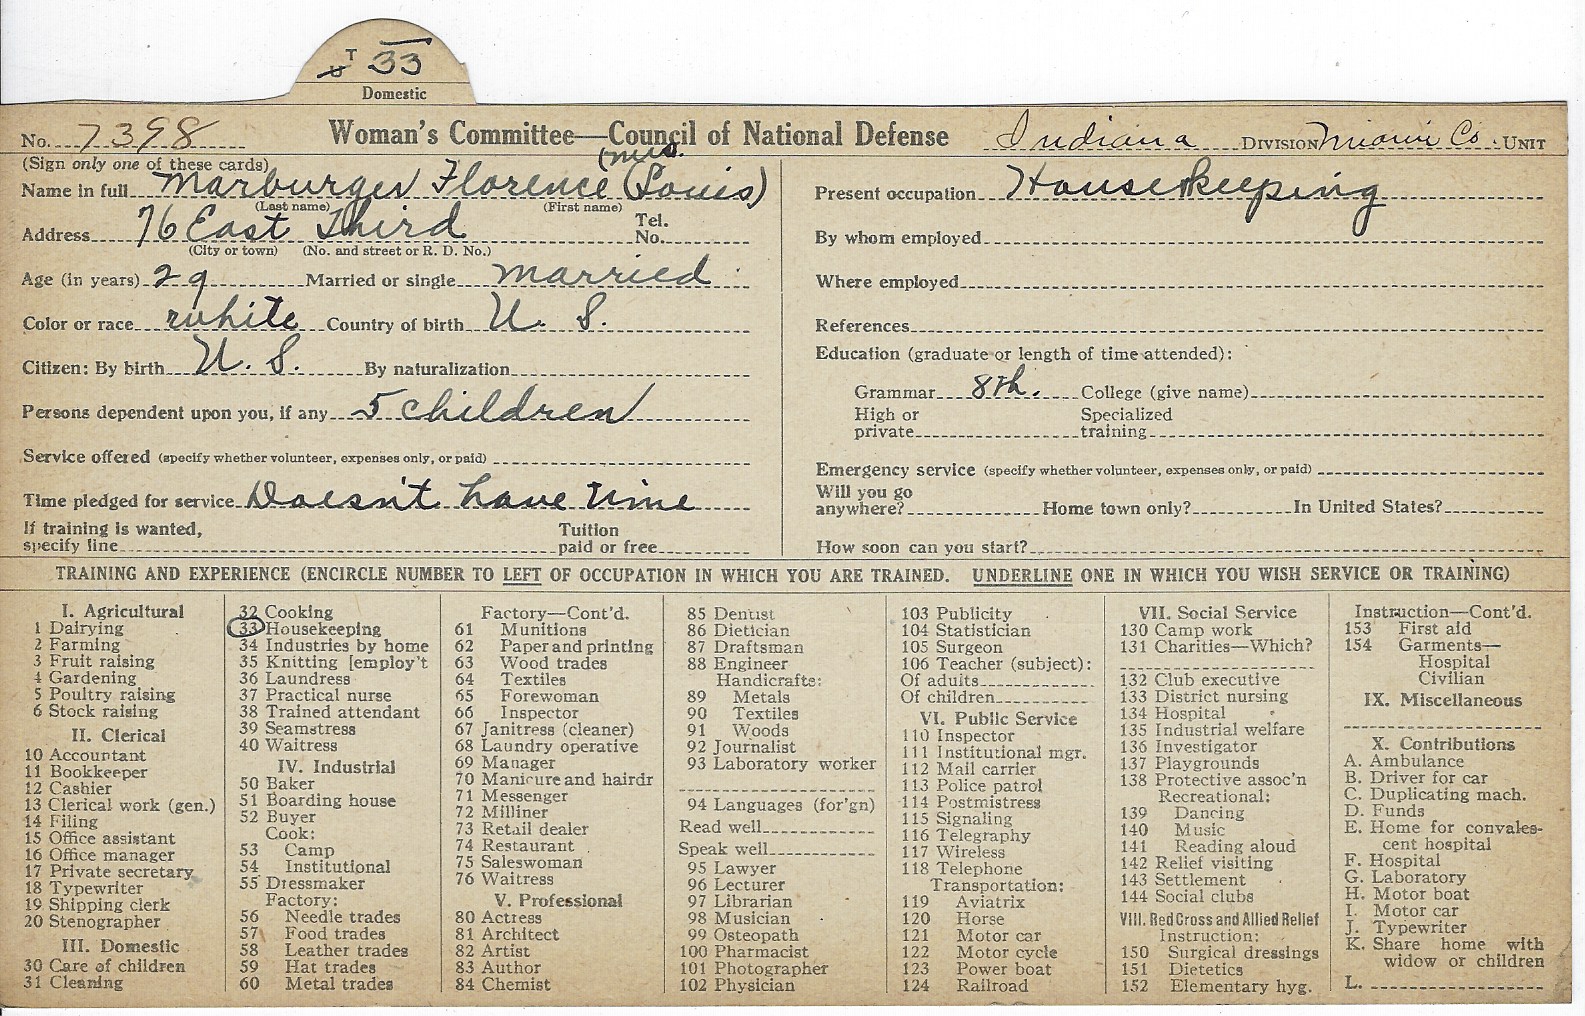 T 33
Domestic
No. 7398 Woman's Committee—Council of National Defense Indiana DIVISION Miami Co. UNIT
(Sign only one of these cards)
(Mrs.
Name in full Marburger Florence (Louis)
(Last name) (First name)
Address 76 East Third Tel. No.
(City or town) (No. and street or R. D. No.)
Age (in years) 29 Married or single married
Color or race white Country of birth U. S.
Citizen: By birth U. S. By naturalization
Persons dependent upon you, if any 5 children
Service offered (specify whether volunteer, expenses only, or paid)
Time pledged for service Doesn't have time
If training is wanted, Tuition
specify line paid or free
Present occupation Housekeeping
By whom employed
Where employed
References
Education (graduate or length of time attended):
Grammar 8th. College (give name)
High or Specialized
private training
Emergency service (specify whether volunteer, expenses only, or paid)
Will you go
anywhere? Home town only? In United States?
How soon can you start?
TRAINING AND EXPERIENCE (ENCIRCLE NUMBER TO LEFT OF OCCUPATION IN WHICH YOU ARE TRAINED. UNDERLINE ONE IN WHICH YOU WISH SERVICE OR TRAINING)
I. Agricultural
1 Dairying
2 Farming
3 Fruit raising
4 Gardening
5 Poultry raising
6 Stock raising
II. Clerical
10 Accountant
11 Bookkeeper
12 Cashier
13 Clerical work (gen.)
14 Filing
15 Office assistant
16 Office manager
17 Private secretary
18 Typewriter
19 Shipping clerk
20 Stenographer
III. Domestic
30 Care of children
31 Cleaning
32 Cooking
33 Housekeeping
34 Industries by home
35 Knitting [employ't
36 Laundress
37 Practical nurse
38 Trained attendant
39 Seamstress
40 Waitress
IV. Industrial
50 Baker
51 Boarding house
52 Buyer
Cook:
53 Camp
54 Institutional
55 Dressmaker
Factory:
56 Needle trades
57 Food trades
58 Leather trades
59 Hat trades
60 Metal trades
Factory—Cont'd.
61 Munitions
62 Paper and printing
63 Wood trades
64 Textiles
65 Forewoman
66 Inspector
67 Janitress (cleaner)
68 Laundry operative
69 Manager
70 Manicure and hairdr
71 Messenger
72 Milliner
73 Retail dealer
74 Restaurant
75 Saleswoman
76 Waitress
V. Professional
80 Actress
81 Architect
82 Artist
83 Author
84 Chemist
85 Dentist
86 Dietician
87 Draftsman
88 Engineer
Handicrafts:
89 Metals
90 Textiles
91 Woods
92 Journalist
93 Laboratory worker
94 Languages (for'gn)
Read well
Speak well
95 Lawyer
96 Lecturer
97 Librarian
98 Musician
99 Osteopath
100 Pharmacist
101 Photographer
102 Physician
103 Publicity
104 Statistician
105 Surgeon
106 Teacher (subject):
Of adults
Of children
VI. Public Service
110 Inspector
111 Institutional mgr.
112 Mail carrier
113 Police patrol
114 Postmistress
115 Signaling
116 Telegraphy
117 Wireless
118 Telephone
Transportation:
119 Aviatrix
120 Horse
121 Motor car
122 Motor cycle
123 Power boat
124 Railroad
VII. Social Service
130 Camp work
131 Charities—Which?
132 Club executive
133 District nursing
134 Hospital
135 Industrial welfare
136 Investigator
137 Playgrounds
138 Protective assoc'n
Recreational:
139 Dancing
140 Music
141 Reading aloud
142 Relief visiting
143 Settlement
144 Social clubs
VIII. Red Cross and Allied Relief
Instruction:
150 Surgical dressings
151 Dietetics
152 Elementary hyg.
Instruction—Cont'd.
153 First aid
154 Garments—
Hospital
Civilian
IX. Miscellaneous
X. Contributions
A. Ambulance
B. Driver for car
C. Duplicating mach.
D. Funds
E. Home for convales-
cent hospital
F. Hospital
G. Laboratory
H. Motor boat
I. Motor car
J. Typewriter
K. Share home with
widow or children
L.